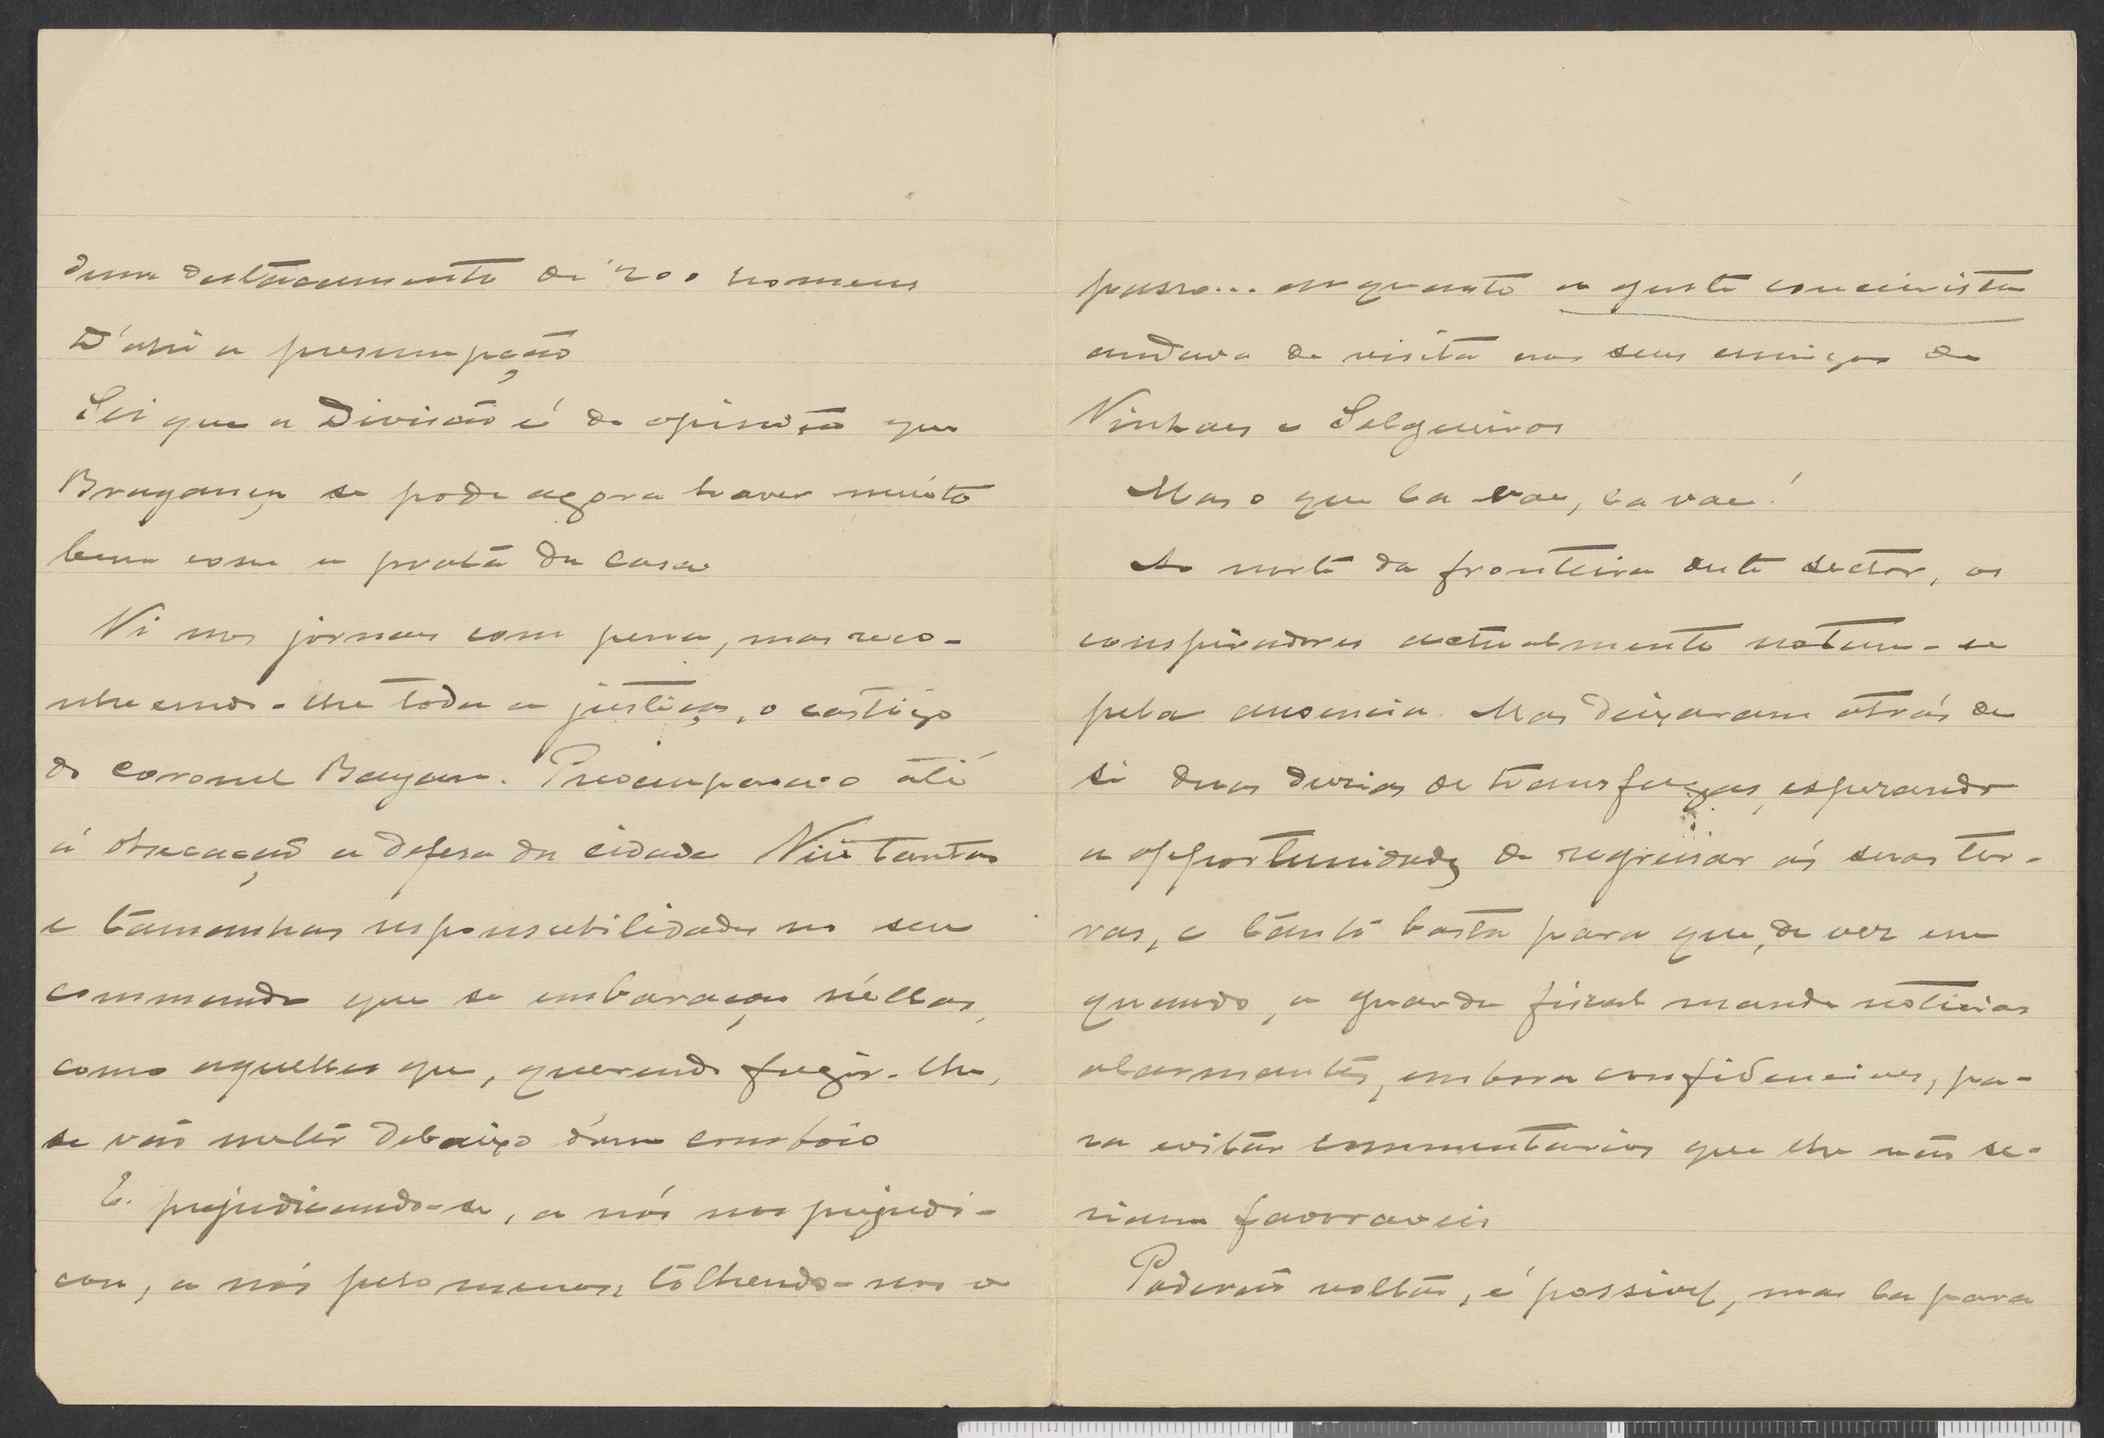 dum destacamento de 200 homens
D'ahi a presumpção
Sei que a Divisão é de opinião que
Bragança se pode agora haver muito
bem com a prata da casa
Vi nos jornaes com pena, mas reco-
nhecendo-lhe toda a justiça, o castigo
do coronel Bayam. Preocupava-o até
á obsecação a defesa da cidade Viu tantas
e tamanhas responsabilidades no seu
commando que se embaraçou n'éllas,
como aquelles que, querendo fugir-lhe,
se vão meter debaixo d'um comboio
E. prejudicando-se, a nós nos prejudi-
cou, a nós pelo menos, tolhendo-nos o
passo... emquanto a gente couceirista
andava de visita aos seus amigos de
Vinhaes e Salgueiros
Mas o que la vae, la vae!
Ao norte da fronteira deste sector, os
conspiradores actualmente notam-se
pela ausencia. Mas deixaram atrás de
si duas duzias de transfugas, esperando
a opportunidade de regressar ás suas ter-
ras, e tanto basta para que, de vez em
quando, a guarda fiscal mande noticias
alarmantes, embora confidenciaes, pa-
ra evitar commentarios que lhe não se-
riam favoraveis
Poderão voltar, é possivel, mas la para